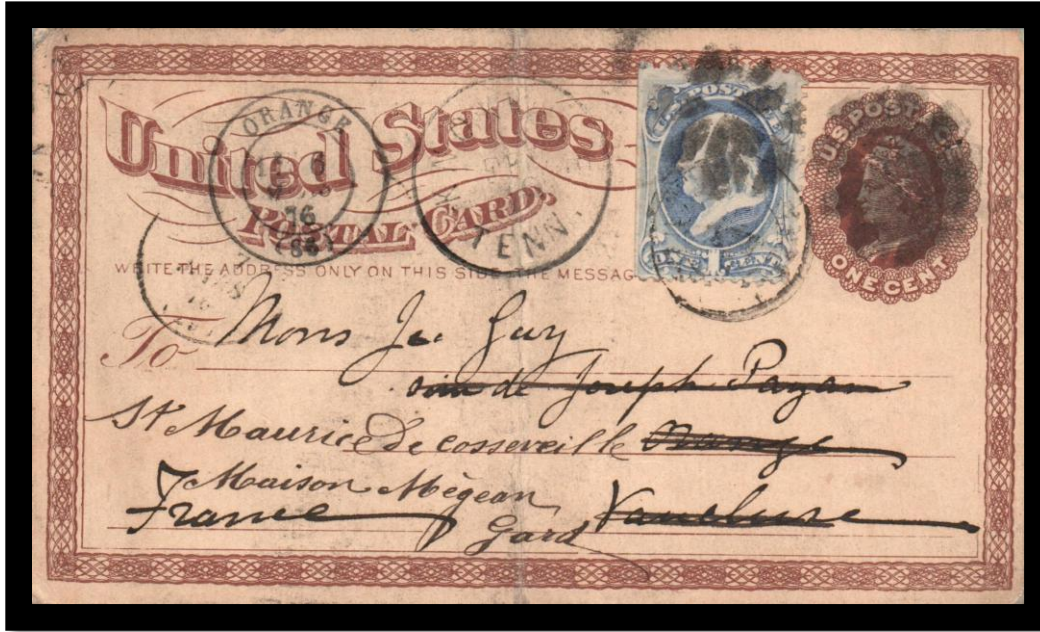 United States
POSTAL CARD.
WRITE THE ADDRESS ONLY ON THIS SIDE - THE MESSAG
ORANGE
76
(86)
TENN.
U.S. POSTAGE
ONE 1 CENT
U.S. POSTAGE
ONE CENT
To Mons Je. Guy
de Joseph Payan
St Maurice de cosseveille Orange
Maison Mégean
France Gard Vaucluse